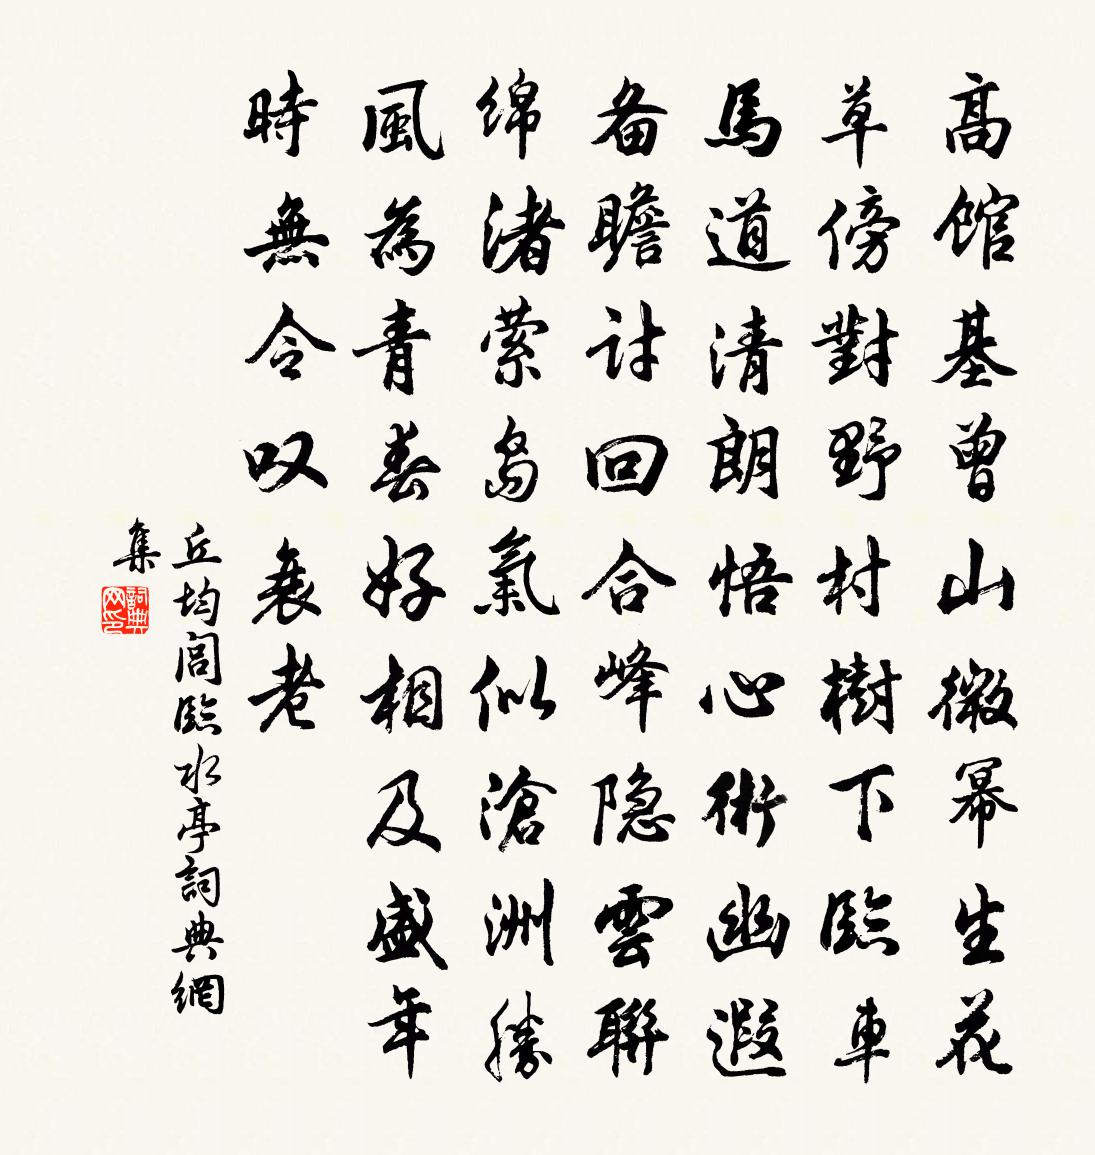 高館基曾山微幂生花
草傍對野村樹下臨車
馬道清朗悟心術幽遐
备瞻討回合峰隐雲聯
绵渚萦島氣似滄洲勝
風為青春好相及盛年
時無令叹衰老
丘均閣臨水亭詞典網
集
詞典网印